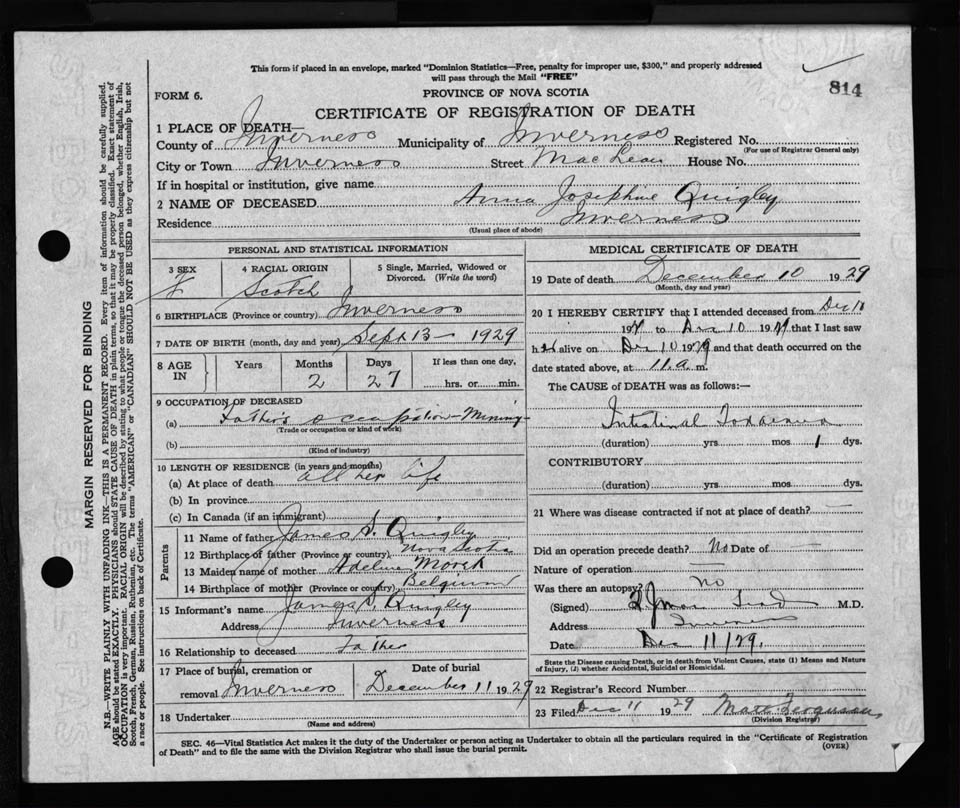 This form if placed in an envelope, marked "Dominion Statistics—Free, penalty for improper use, $300," and properly addressed
will pass through the Mail "FREE"
814
FORM 6.
PROVINCE OF NOVA SCOTIA
CERTIFICATE OF REGISTRATION OF DEATH
1 PLACE OF DEATH—
County of Inverness Municipality of Inverness Registered No.
(For use of Registrar General only)
City or Town Inverness Street MacLean House No.
If in hospital or institution, give name
2 NAME OF DECEASED Anna Josephine Quigley
Residence Inverness
(Usual place of abode)
PERSONAL AND STATISTICAL INFORMATION
3 SEX 4 RACIAL ORIGIN 5 Single, Married, Widowed or
Divorced. (Write the word)
F Scotch S
6 BIRTHPLACE (Province or country) Inverness
7 DATE OF BIRTH (month, day and year) Sept 13 — 1929
8 AGE IN Years Months Days If less than one day,
2 27 hrs. or min.
9 OCCUPATION OF DECEASED
(a) Father's occupation — Mining
(Trade or occupation or kind of work)
(b)
(Kind of industry)
10 LENGTH OF RESIDENCE (in years and months)
(a) At place of death all her life
(b) In province
(c) In Canada (if an immigrant)
Parents
11 Name of father James S. Quigley
12 Birthplace of father (Province or country) Nova Scotia
13 Maiden name of mother Adeline
14 Birthplace of mother ( " " ) Belgium
15 Informant's name James S. Quigley
Address Inverness
16 Relationship to deceased Father
17 Place of burial, cremation or Date of burial
removal Inverness December 11 1929
18 Undertaker
(Name and address)
MEDICAL CERTIFICATE OF DEATH
19 Date of death December 10 1929
(Month, day and year)
20 I HEREBY CERTIFY that I attended deceased from Dec 10
1929 to Dec 10 1929 that I last saw
her alive on Dec 10 1929 and that death occurred on the
date stated above, at 11 a. m.
The CAUSE of DEATH was as follows:—
Intestinal Toxaemia
(duration) yrs. mos. 1 dys.
CONTRIBUTORY
(duration) yrs. mos. dys.
21 Where was disease contracted if not at place of death? —
Did an operation precede death? No Date of —
Nature of operation —
Was there an autopsy? No
(Signed) M.D.
Address Inverness
Date Dec 11/29.
State the Disease causing Death, or in death from Violent Causes, state (1) Means and Nature
of Injury, (2) whether Accidental, Suicidal or Homicidal.
22 Registrar's Record Number
23 Filed Dec 11 1929 Ferguson
(Division Registrar)
SEC. 46—Vital Statistics Act makes it the duty of the Undertaker or person acting as Undertaker to obtain all the particulars required in the "Certificate of Registration
of Death" and to file the same with the Division Registrar who shall issue the burial permit.
(OVER)
MARGIN RESERVED FOR BINDING
N.B.—WRITE PLAINLY WITH UNFADING INK—THIS IS A PERMANENT RECORD. Every item of information should be carefully supplied.
AGE should be stated EXACTLY. PHYSICIANS should STATE CAUSE OF DEATH in plain terms, so that it may be properly classified. Exact statement of
OCCUPATION is very important. RACIAL ORIGIN will be described by stating to what people or tongue the deceased person belonged, whether English, Irish,
Scotch, French, German, Russian, Ruthenian, etc. The terms "AMERICAN" or "CANADIAN" SHOULD NOT BE USED as they express citizenship but not
a race or people. See instructions on back of Certificate.